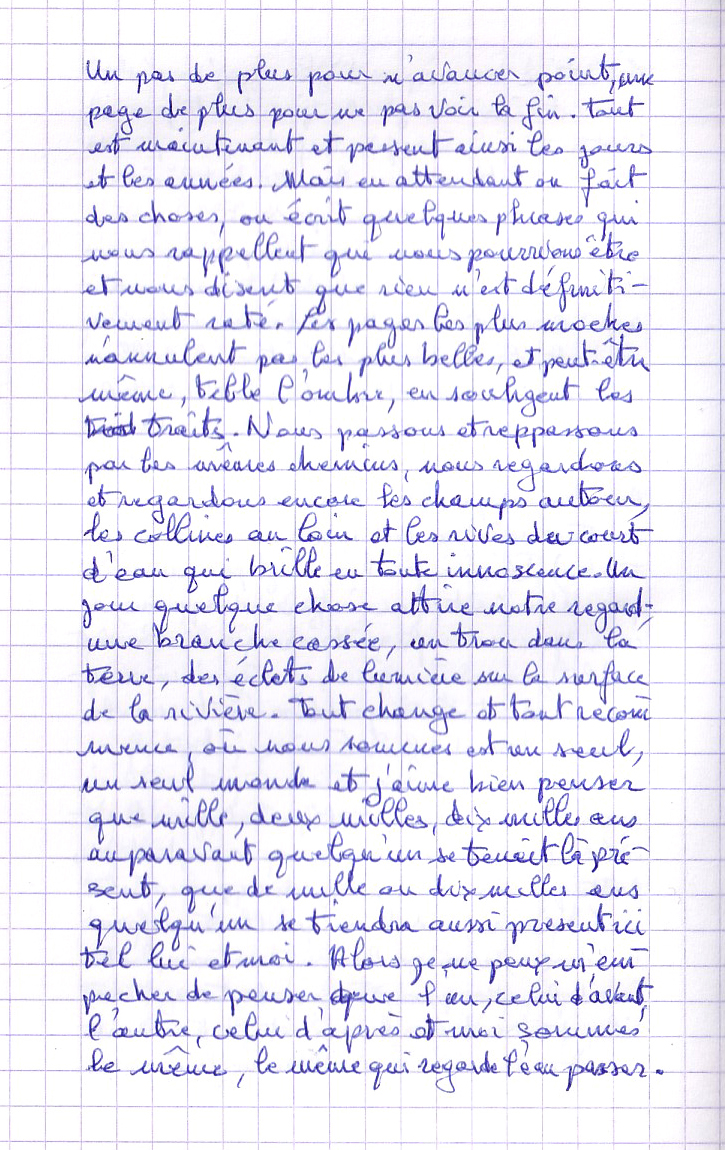 Un pas de plus pour n'avancer point, une
page de plus pour ne pas voir la fin. Tout
est maintenant et passent ainsi les jours
et les années. Mais en attendant on fait
des choses, on écrit quelques phrases qui
nous rappellent que nous pourrions être
et nous disent que rien n'est définiti-
vement raté. Les pages les plus moches
n'annulent pas les plus belles, et peut-être
même, telle l'ombre, en souligent les
traits. Nous passons et reppassons
par les mêmes chemins, nous regardons
et regardons encore les champs autour,
les collines au loin et les rives du court
d'eau qui brille en toute innoscence. Un
jour quelque chose attire notre regard :
une branche cassée, un trou dans la
terre, des éclats de lumière sur la surface
de la rivière. Tout change et tout recom
mence, où nous sommes est un seul,
un seul monde et j'aime bien penser
que mille, deux milles, dix milles ans
auparavant quelqu'un se tenait là pré-
sent, que de mille ou dix milles ans
quelqu'un se tiendra aussi present ici
tel lui et moi. Alors je ne peux m'em
pecher de penser que l'un, celui d'avant,
l'autre, celui d'après et moi sommes
le même, le même qui regarde l'eau passer.